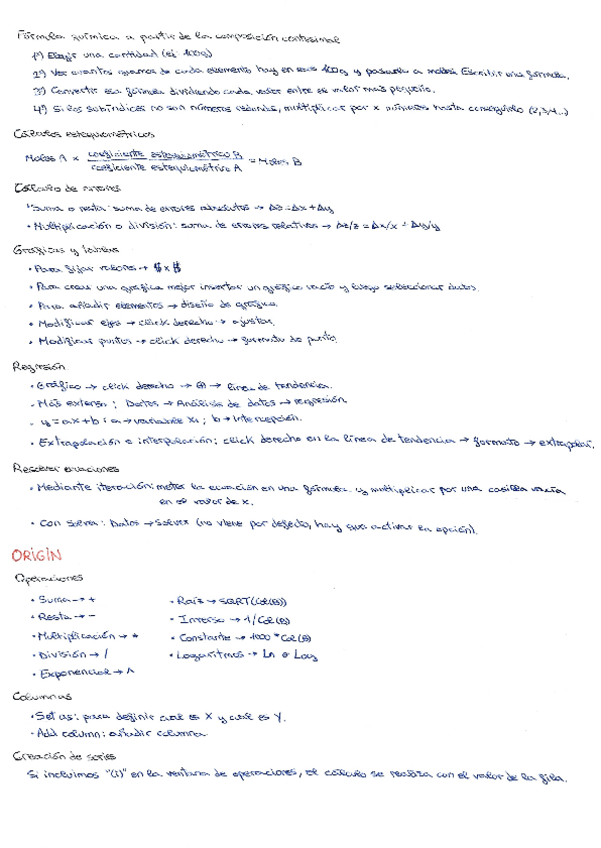 Fórmula química a partir de la composición centesimal
1º) Elegir una cantidad (ej: 100g)
2º) Ver cuantos gramos de cada elemento hay en esos 100g y pasarlo a moles. Escribir una fórmula.
3º) Convertir esa fórmula dividiendo cada valor entre el valor más pequeño.
4º) Si los subíndices no son números redondos, multiplicar por x números hasta conseguirlo (2,3,4...)
Cálculos estequiométricos
Moles A x coeficiente estequiométrico B / coeficiente estequiométrico A = Moles B
Cálculo de errores
• Suma o resta: suma de errores absolutos → Δz = Δx + Δy
• Multiplicación o división: suma de errores relativos → Δz/z = Δx/x + Δy/y
Gráficas y tablas
• Para fijar valores → $x$
• Para crear una gráfica mejor insertar un gráfico vacío y luego seleccionar datos.
• Para añadir elementos → diseño de gráfica.
• Modificar ejes → click derecho → ajustar.
• Modificar puntos → click derecho → formato de punto.
Regresión
• Gráfico → click derecho → → línea de tendencia.
• Más extensa: Datos → Análisis de datos → regresión
• y = ax + b : a → variable X1 ; b → intercepción.
• Extrapolación e interpolación: click derecho en la línea de tendencia → formato → extrapolar.
Resolver ecuaciones
• Mediante iteración: meter la ecuación en una fórmula y multiplicar por una casilla vacía
en el valor de x.
• Con solver: Datos → Solver (no viene por defecto, hay que activar la opción).
ORIGIN
Operaciones
• Suma → +
• Resta → -
• Multiplicación → *
• División → /
• Exponencial → ^
• Raíz → SQRT(Col(B))
• Inverso → 1/Col(B)
• Constante → 1000 * Col(B)
• Logaritmos → Ln o Log
Columnas
• Set as: para definir cual es X y cual es Y.
• Add column: añadir columna
Creación de series
Si incluimos "(i)" en la ventana de operaciones, el cálculo se realiza con el valor de la fila.